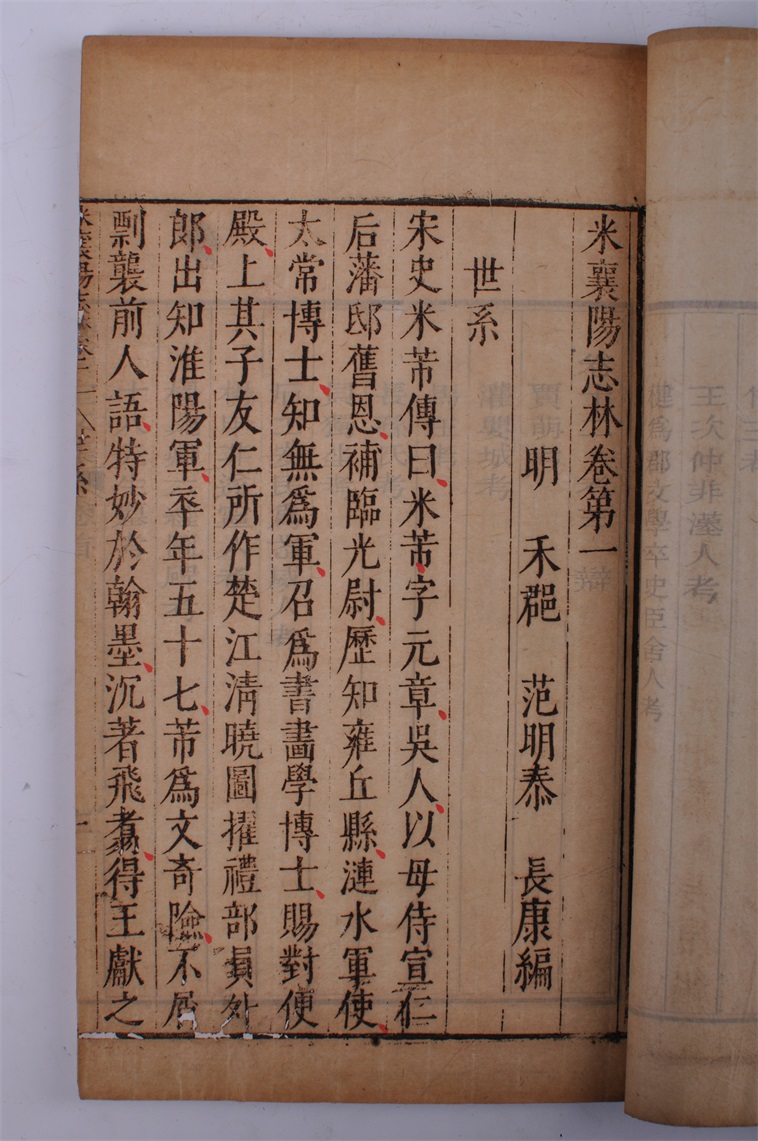 米襄陽志林卷第一
明　禾郡　范明泰　長康編
世系
宋史米芾傳曰米芾字元章吳人以母侍宣仁
后藩邸舊恩補臨光尉歷知雍丘縣漣水軍使
太常博士知無為軍召為書畫學博士賜對便
殿上其子友仁所作楚江淸曉圖擢禮部員外
郎出知淮陽軍卒年五十七芾為文奇險不
剽襲前人語特妙於翰墨沉著飛翥得王獻之
米襄陽志林卷一
世系
一
王次仲非漢人考
文學卒史臣舍人考